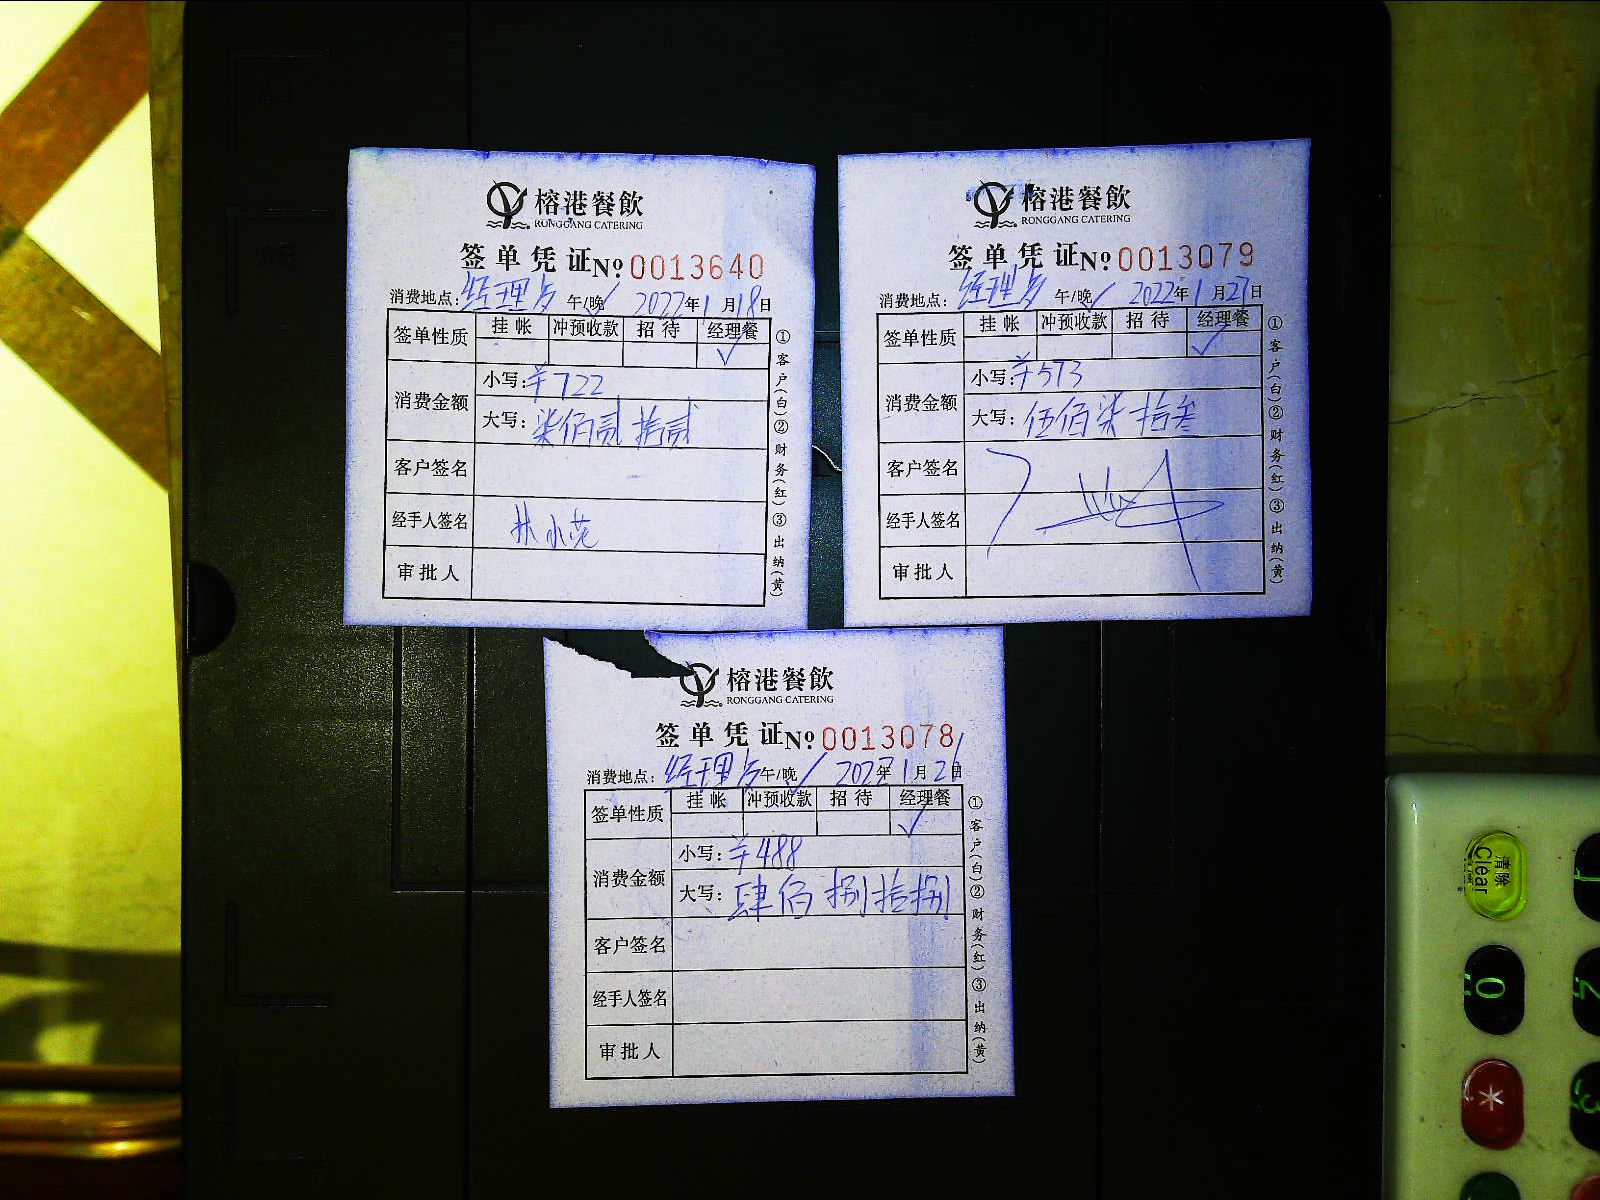 榕港餐飲
RONGGANG CATERING
签单凭证 № 0013640
消费地点: 经理房 午/晚 ✓ 2022年1月18日
签单性质 挂帐 冲预收款 招待 经理餐
✓
消费金额 小写: ¥722
大写: 柒佰贰拾贰
客户签名
经手人签名 林小花
审批人
①客户(白)②财务(红)③出纳(黄)
榕港餐飲
RONGGANG CATERING
签单凭证 № 0013079
消费地点: 经理房 午/晚 ✓ 2022年1月21日
签单性质 挂帐 冲预收款 招待 经理餐
✓
消费金额 小写: ¥573
大写: 伍佰柒拾叁
客户签名
经手人签名
审批人
①客户(白)②财务(红)③出纳(黄)
榕港餐飲
RONGGANG CATERING
签单凭证 № 0013078
消费地点: 经理房 午/晚 ✓ 2022年1月21日
签单性质 挂帐 冲预收款 招待 经理餐
✓
消费金额 小写: ¥488
大写: 肆佰捌拾捌
客户签名
经手人签名
审批人
①客户(白)②财务(红)③出纳(黄)
清除
Clear
0
*